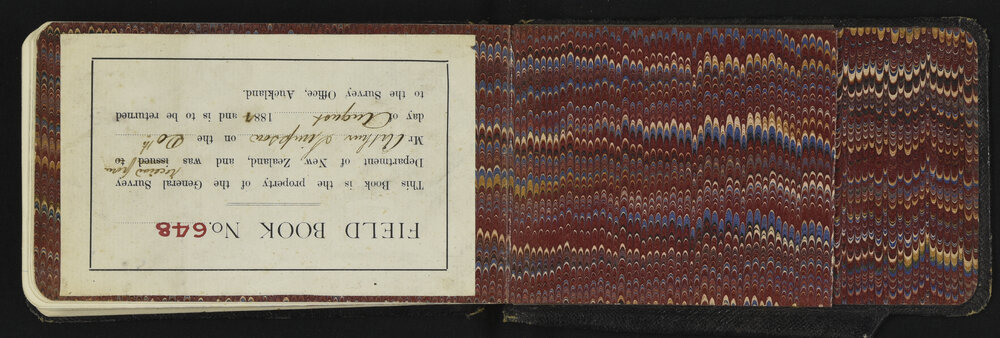 FIELD BOOK No. 648
This Book is the property of the General Survey
received from
Department of New Zealand, and was issued to
Mr Arthur Simpson on the 20th
day of August 1887 and is to be returned
to the Survey Office, Auckland.